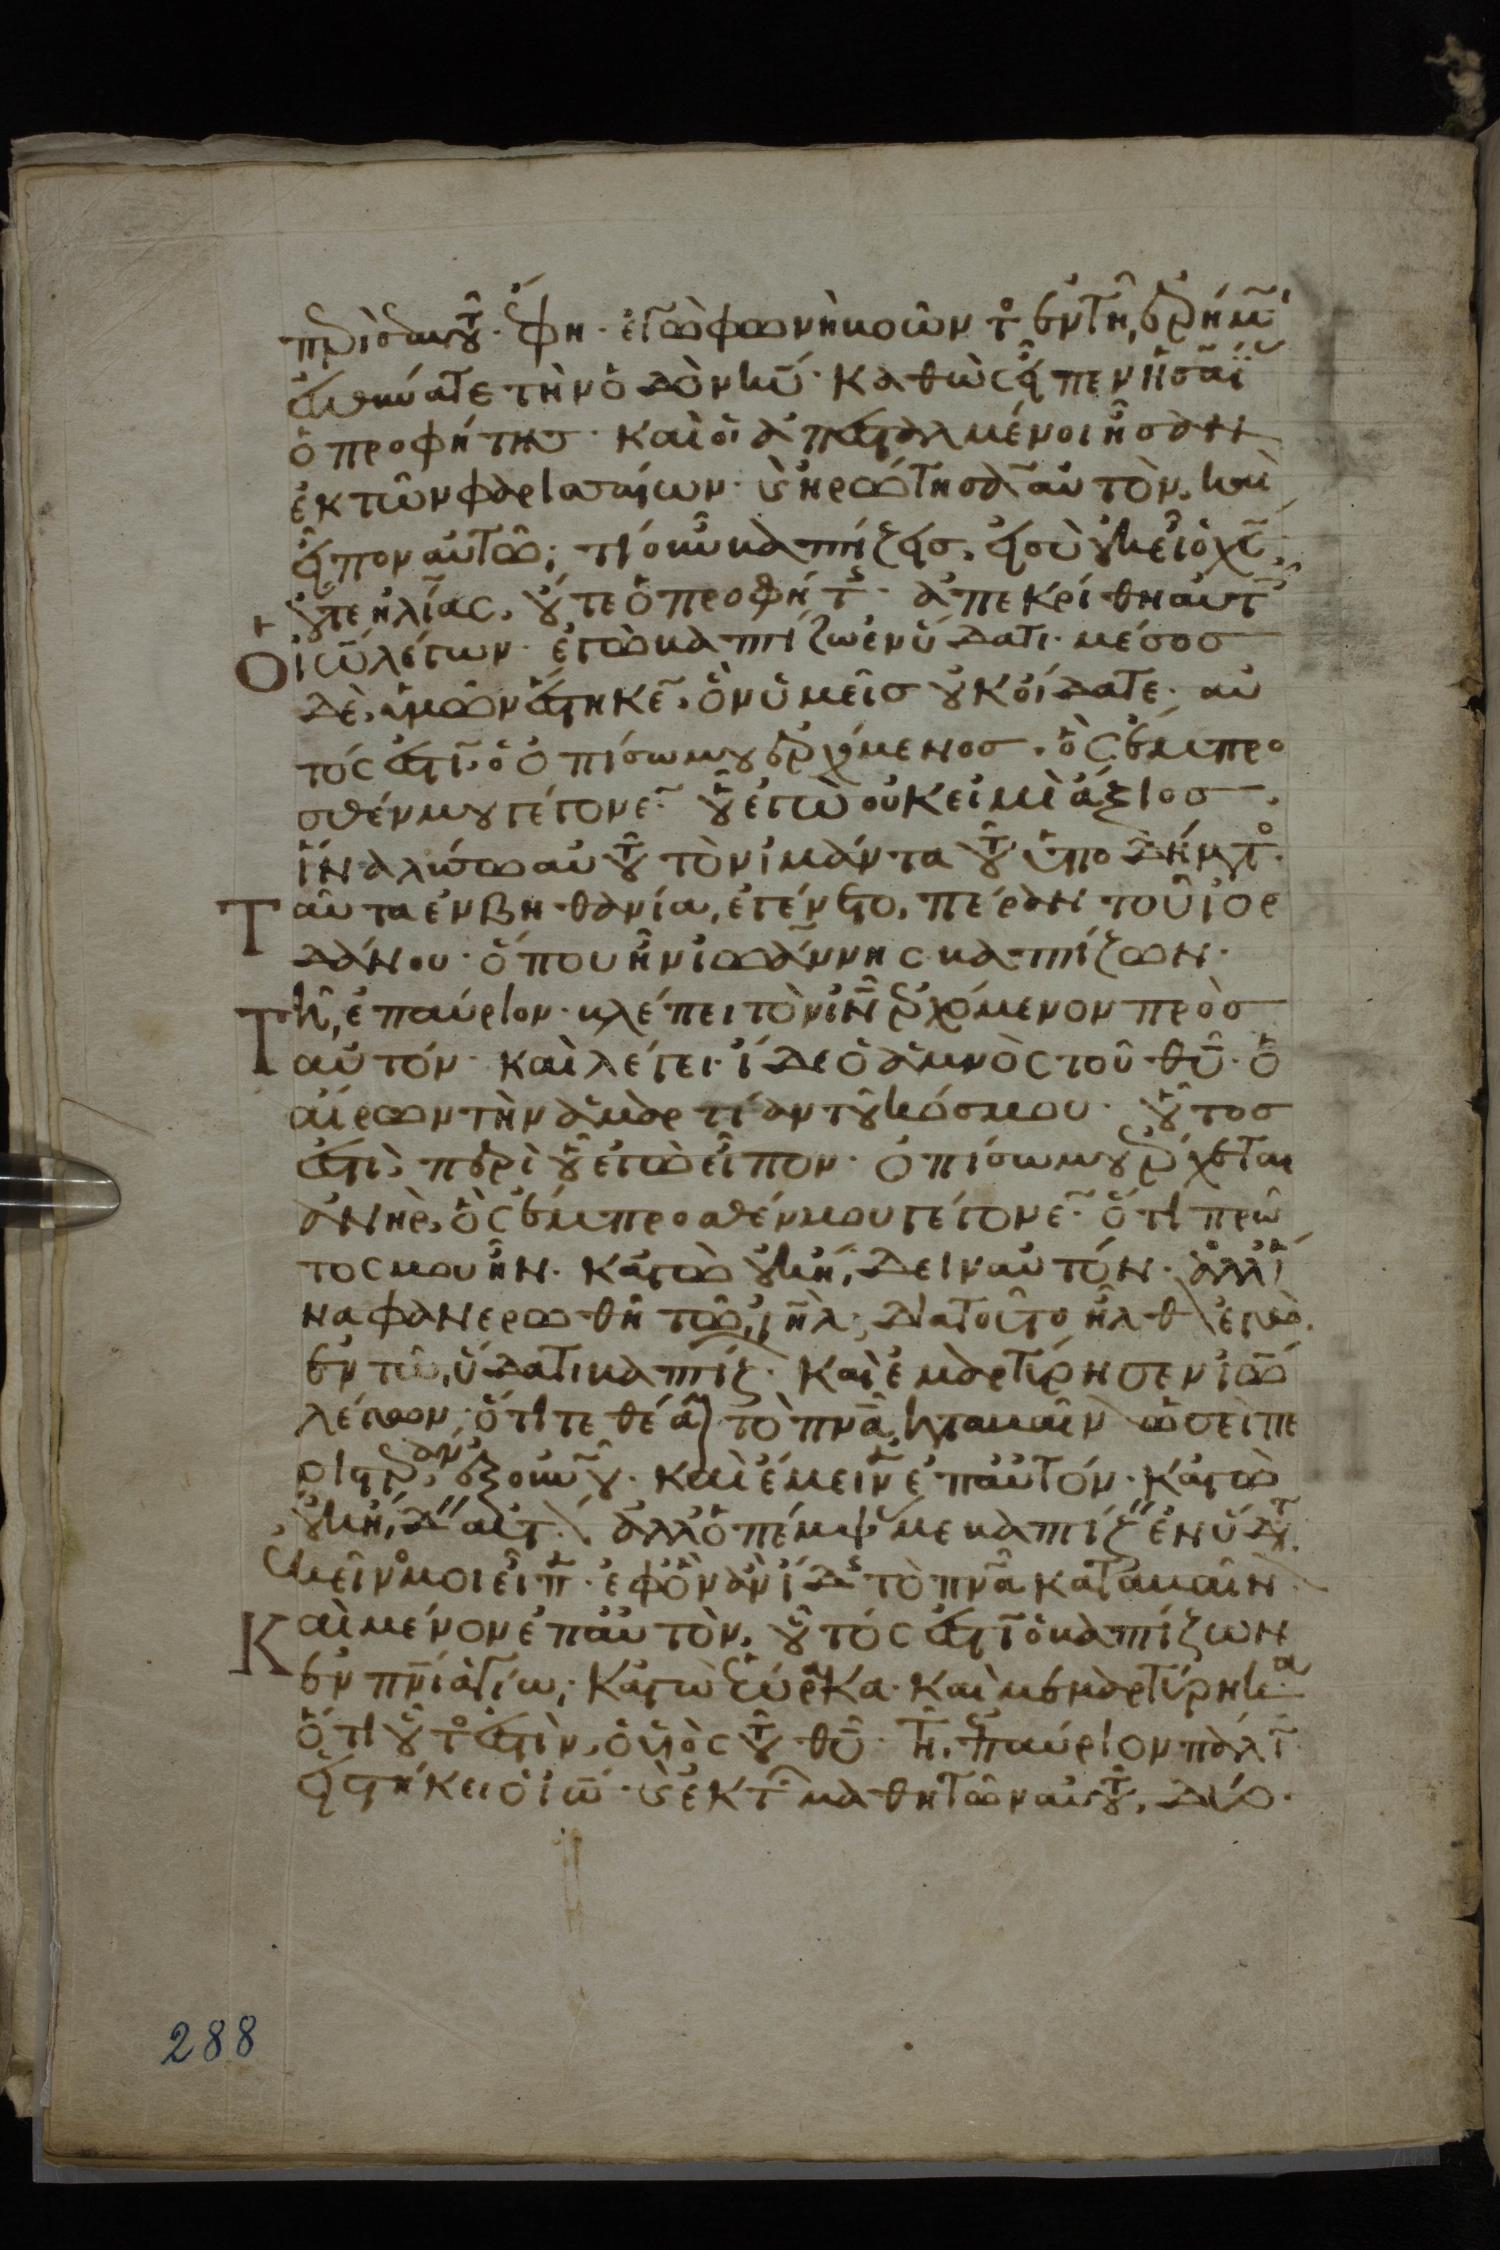 περὶ σεαυτοῦ. ἔφη. ἐγὼ φωνὴ βοῶντος ἐν τῆ ἐρήμω
εὐθύνατε τὴν ὁδὸν κ̅υ̅. καθὼς εἶπεν ἡσαΐ
ὁ προφήτης. καὶ οἱ ἀπεσταλμένοι ἦσαν
ἐκ τῶν φαρισαίων. καὶ ἠρώτησαν αὐτὸν, καὶ
εἶπον αὐτῶ; τί οὖν βαπτίζεις, εἰ σὺ οὐκ εἶ ὁ χ̅ς̅,
οὔτε ἡλίας, οὔτε ὁ προφήτης. ἀπεκρίθη αὐτοῖς
ὁ ἰω̅ λέγων. ἐγὼ βαπτίζω ἐν ὕδατι. μέσος
δὲ, ὑμῶν ἕστηκεν, ὃν ὑμεῖς οὐκ οἴδατε. αὐ
τός ἐστιν, ὁ ὀπίσω μου ἐρχόμενος, ὃς ἔμπρο
σθέν μου γέγονεν. οὗ ἐγὼ οὐκ εἰμὶ ἄξιος
ἵνα λύσω αὐτοῦ τὸν ἱμάντα τοῦ ὑποδήματος.
Ταῦτα ἐν βηθανία, ἐγένετο, πέραν τοῦ ἰορ
δάνου. ὅπου ἦν ἰωάννης βαπτίζων.
Τῆ, ἐπαύριον. βλέπει τὸν ι̅ν̅ ἐρχόμενον πρὸς
αὐτόν. καὶ λέγει. ἴδε ὁ ἀμνὸς τοῦ θ̅υ̅. ὁ
αἴρων τὴν ἁμαρτίαν τοῦ κόσμου. οὗτος
ἐστὶ, περὶ οὗ ἐγὼ εἶπον. ὀπίσω μου ἔρχεται
ἀνὴρ, ὃς ἔμπροσθέν μου γέγονεν. ὅτι πρῶ
τος μου ἦν. κἀγὼ οὐκ ἤ,δειν αὐτόν. ἀλλ' ἵ
να φανερωθῆ τῶ, ι̅η̅λ̅, διατοῦτο ἦλθον ἐγὼ,
ἐν τῶ, ὕδατι βαπτίζων. καὶ ἐμαρτύρησεν ἰω̅
λέγων, ὅτι τεθέαμαι τὸ π̅ν̅α̅, καταβαῖν ὡσεὶ πε
ριστερὰν, ἐξ οὐρανοῦ. καὶ ἔμεινεν ἐπ αὐτόν. κἀγὼ
οὐκ ἤ,δειν αὐτόν. ἀλλ ὁ πέμψας με βαπτίζειν ἐν ὕδατι.
ἐκεῖνος μοι εἶπεν. ἐφ ὃν ἂν ἴδης τὸ π̅ν̅α̅ καταβαῖν
Καὶ μένον ἐπ αὐτὸν, οὗτός ἐστιν ὁ βαπτίζων
ἐν π̅ν̅ι̅ ἁγίω, κἀγὼ ἑώρακα. καὶ μεμαρτύρηκα
ὅτι οὗτος ἐστὶν, ὁ υἱὸς τοῦ θ̅υ̅. τῆ, ἐπαύριον πάλιν
εἱστήκει ὁ ἰω̅. καὶ ἐκ τῶν μαθητῶν αὐτοῦ, δύο.
288